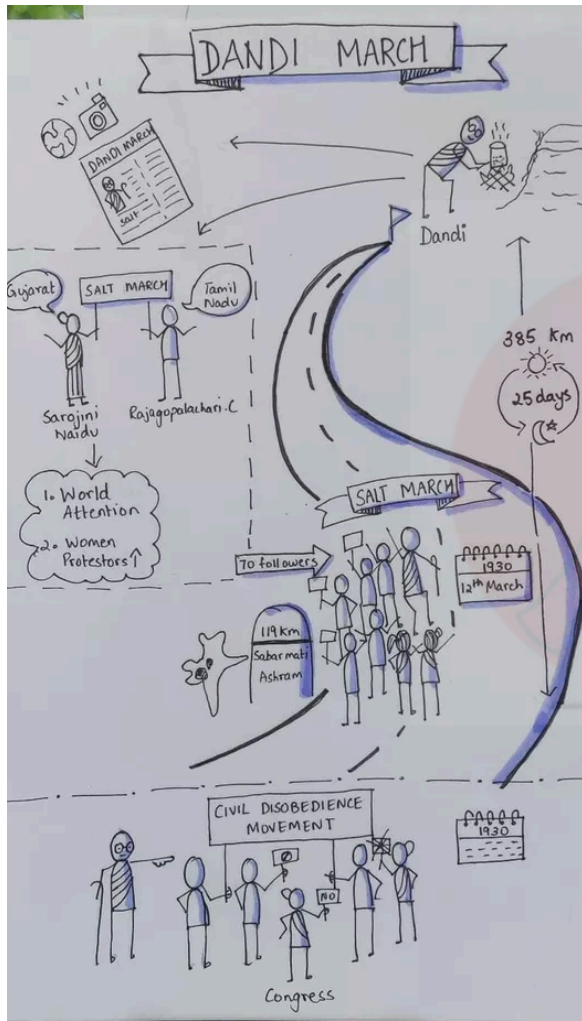 DANDI MARCH
DANDI MARCH
Salt
Dandi
Gujarat
SALT MARCH
Tamil
Nadu
Sarojini
Naidu
Rajagopalachari.C
385 Km
25 days
1. World
Attention
2. Women
Protestors
SALT MARCH
70 followers
1930
12th March
119 km
Sabarmati
Ashram
CIVIL DISOBEDIENCE
MOVEMENT
1930
NO
Congress